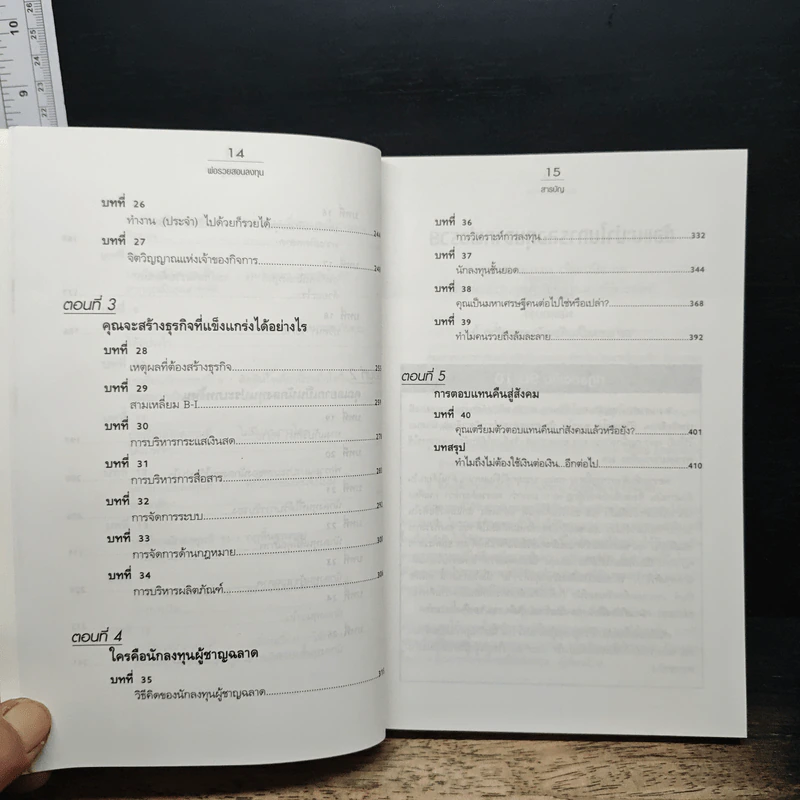 10
9
26
25
24
23
22
14
พ่อรวยสอนลงทุน
บทที่ 26
ทำงาน (ประจำ) ไปด้วยก็รวยได้
บทที่ 27
จิตวิญญาณแห่งเจ้าของกิจการ
ตอนที่ 3
คุณจะสร้างธุรกิจที่แข็งแกร่งได้อย่างไร
บทที่ 28
เหตุผลที่ต้องสร้างธุรกิจ
บทที่ 29
สามเหลี่ยม B-I
บทที่ 30
การบริหารกระแสเงินสด
บทที่ 31
การบริหารการสื่อสาร
บทที่ 32
การจัดการระบบ
บทที่ 33
การจัดการด้านกฎหมาย
บทที่ 34
การบริหารผลิตภัณฑ์
ตอนที่ 4
ใครคือนักลงทุนผู้ชาญฉลาด
บทที่ 35
วิธีคิดของนักลงทุนผู้ชาญฉลาด
15
สารบัญ
บทที่ 36
การวิเคราะห์การลงทุน 332
บทที่ 37
นักลงทุนชั้นยอด 344
บทที่ 38
คุณเป็นมหาเศรษฐีคนต่อไปใช่หรือเปล่า? 368
บทที่ 39
ทำไมคนรวยถึงล้มละลาย 392
ตอนที่ 5
การตอบแทนคืนสู่สังคม
บทที่ 40
คุณเตรียมตัวตอบแทนคืนแก่สังคมแล้วหรือยัง? 401
บทสรุป
ทำไมถึงไม่ต้องใช้เงินต่อเงิน...อีกต่อไป 410